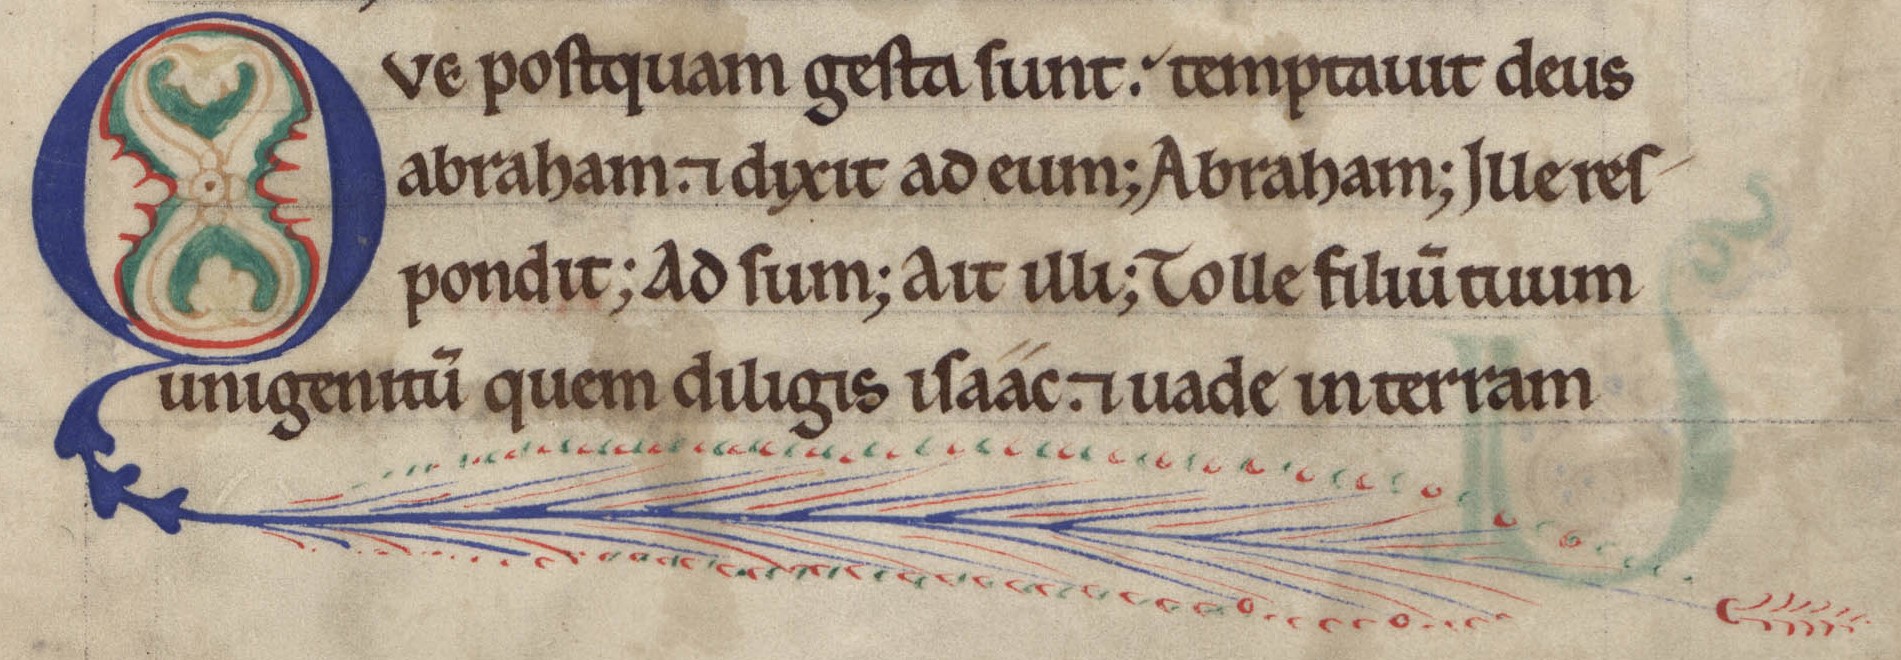 QVE poſtquam geſta ſunt. temptauit deus
abraham. ⁊ dixit ad eum; Abraham; Ille reſ-
pondit; Ad ſum; Ait illi; Tolle filiū tuum
unigenitū quem diligis iſaác. ⁊ uade in terram